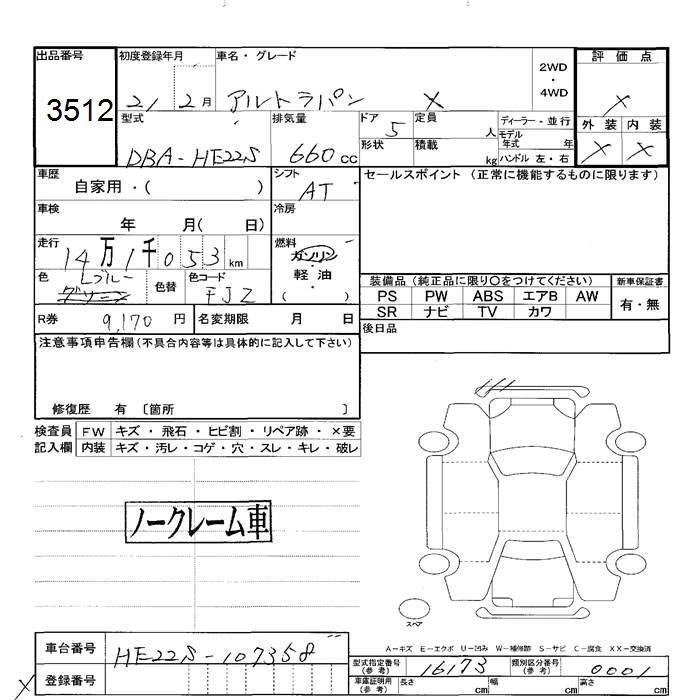 出品番号 初度登録年月 車名・グレード 2WD・4WD 評価点
3512 21 2月 アルトラパン X X
型式 排気量 ドア 5 定員 人 ディーラー・並行 外装 内装
DBA-HE22S 660cc 形状 積載 kg モデル年式 年 X X
ハンドル 左・右
車歴 シフト セールスポイント(正常に機能するものに限ります)
自家用・( ) AT
車検 冷房
年 月( 日)
走行 燃料
14万1千053km ガソリン
軽・油
( )
色 Lブルー 色替 色コード FJZ
グリーン
装備品(純正品に限り○をつけてください) 新車保証書
PS PW ABS エアB AW 有・無
SR ナビ TV カワ
R券 9,170 円 名変期限 月 日 後日品
注意事項申告欄(不具合内容等は具体的に記入して下さい)
修復歴 有 〔箇所 〕
検査員 FW キズ・飛石・ヒビ割・リペア跡・×要
記入欄 内装 キズ・汚レ・コゲ・穴・スレ・キレ・破レ
ノークレーム車
スペア
A-キズ E-エクボ U-凹み W-補修跡 S-サビ C-腐食 XX-交換済
車台番号 HE22S-107358 型式指定番号(参考) 16173 類別区分番号(参考) 0001
X 登録番号 車庫証明用(参考) 長さ cm 幅 cm 高さ cm